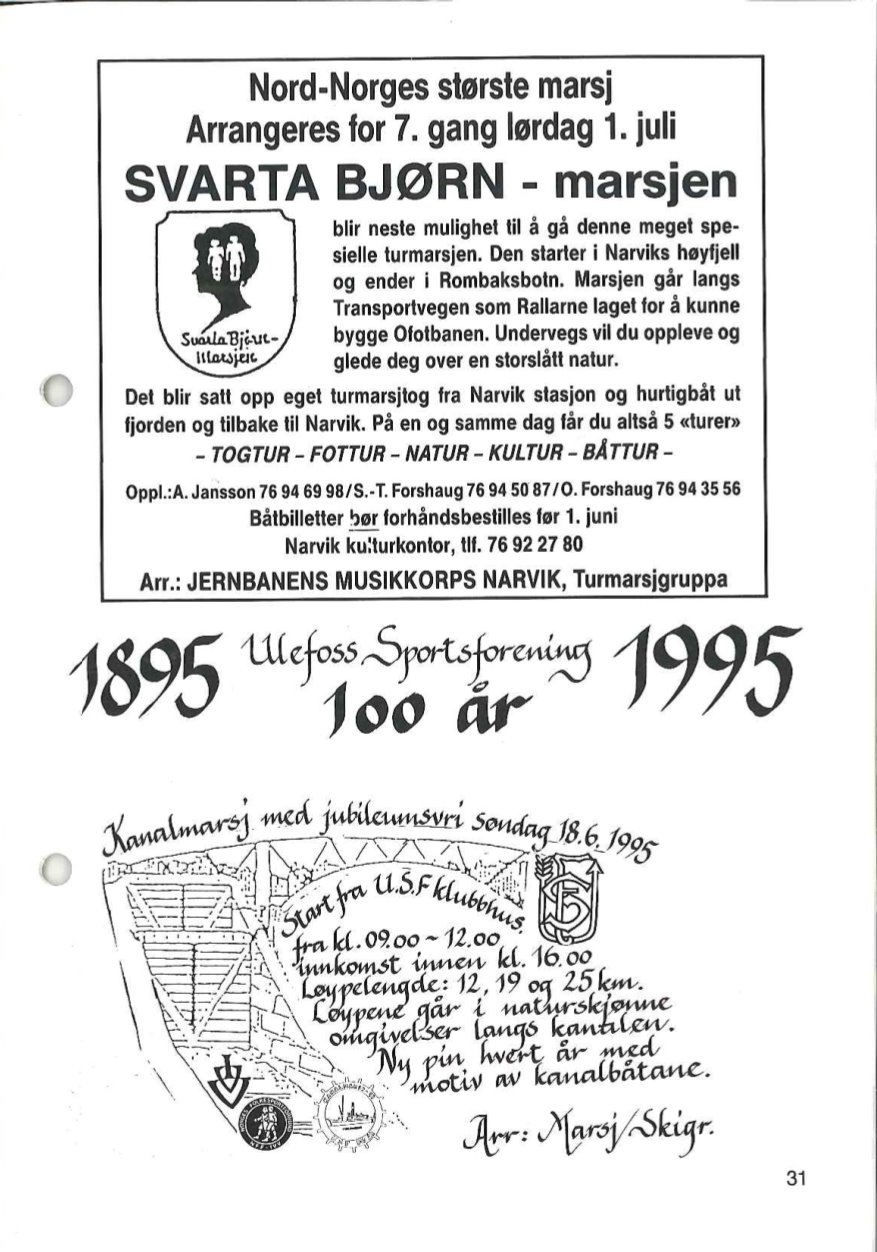 Nord-Norges største marsj
Arrangeres for 7. gang lørdag 1. juli
SVARTA BJØRN - marsjen
Svarta Bjørn-
Marsjen
blir neste mulighet til å gå denne meget spe-
sielle turmarsjen. Den starter i Narviks høyfjell
og ender i Rombaksbotn. Marsjen går langs
Transportvegen som Rallarne laget for å kunne
bygge Ofotbanen. Undervegs vil du oppleve og
glede deg over en storslått natur.
Det blir satt opp eget turmarsjtog fra Narvik stasjon og hurtigbåt ut
fjorden og tilbake til Narvik. På en og samme dag får du altså 5 «turer»
– TOGTUR – FOTTUR – NATUR – KULTUR – BÅTTUR –
Oppl.:A. Jansson 76 94 69 98/S.-T. Forshaug 76 94 50 87/O. Forshaug 76 94 35 56
Båtbilletter bør forhåndsbestilles før 1. juni
Narvik kulturkontor, tlf. 76 92 27 80
Arr.: JERNBANENS MUSIKKORPS NARVIK, Turmarsjgruppa
1895 Ulefoss Sportsforening 1995
100 år
Kanalmarsj med jubileumsvri søndag 18.6.1995
Start fra U.S.F klubbhus.
fra kl. 09.00 ~ 12.00
innkomst innen kl. 16.00
Løypelengde: 12, 19 og 25 km.
Løypene går i naturskjønne
omgivelser langs kanalen.
Ny pin hvert år med
motiv av kanalbåtane.
Arr: Marsj/Skigr.
31